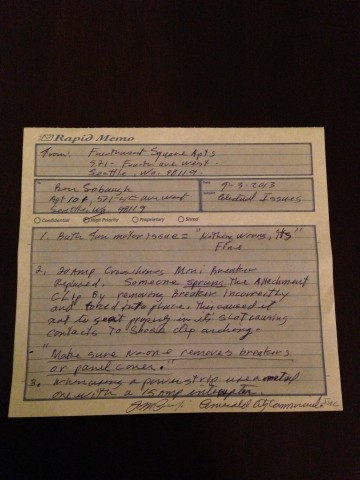 Rapid Memo
From: Square Apts
521 - Fourth ave West.
Seattle, Wa. 98119
To:
Apt 104, 521-4th ave west
Seattle, Wa, 98119
Date
9-3-2013
Subject
Issues
Confidential High Priority Proprietary Dated
1. Bath fan motor issue = "Nothing wrong, It's"
Fine
2. 20 Amp Mini breaker
Replaced. Someone sprung the Attachment
Clip By removing Breaker Incorrectly
and forced into place. This caused it
not to seat properly in its slot causing
contacts To clip arching.
"Make sure No-one removes breakers
or panel cover."
3. When using a power strip use a metal
one with a 15 Amp
Emerald City